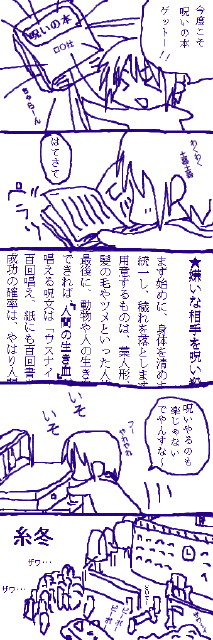 今度こそ
呪いの本
ゲットー!!
呪いの本
ちゃらーん
わくわく
さてさて
★嫌いな相手を呪い殺
まず始めに、身体を清め
統一し、穢れを落とします
用意するものは、藁人形、
髪の毛やツメといった人
最後に、動物や人の生き
できれば『人間の生き血』
唱える呪文は「ウスナイ
百回唱え、紙にも百回書
成功の確率は、やはり人間
呪いやるのも
楽じゃない
でやんすな〜
いそ
いそ
終
ザワ…
ザワ…